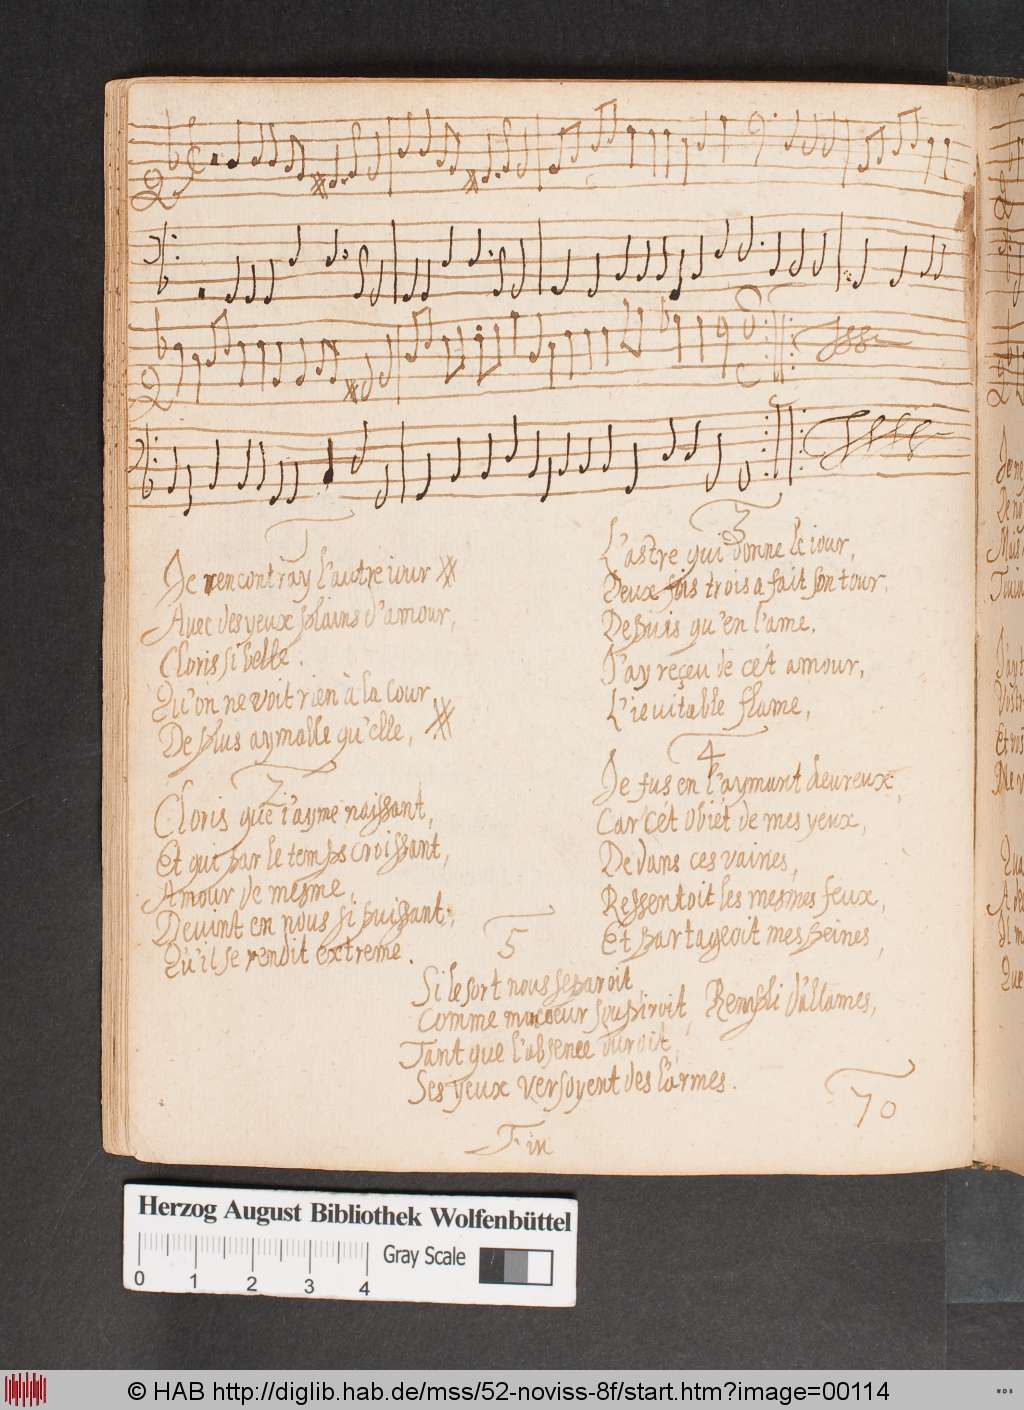 1
Je rencontray l'autre iour
Avec des yeux plains d'amour,
Cloris si belle.
Qu'on ne voit rien à la cour,
De plus aymable qu'elle,
2
Cloris que i'ayme naissant,
Et qui par le temps croissant,
Amour de mesme,
Devint en nous si puissant,
Qu'il se rendit extreme.
3
L'astre qui donne le iour,
Deux fois trois a fait son tour,
Depuis qu'en l'ame,
J'ay reçeu de cét amour,
L'ieuitable flame,
4
Je fus en l'aymant heureux,
Car cét obiét de mes yeux,
Dedans ces vaines,
Ressentoit les mesmes feux,
Et partageoit mes peines,
5
Si le sort nous separoit,
Comme mon coeur soupiroit, Rempli d'allames,
Tant que l'absence duroit,
Ses yeux versoyent des larmes.
Fin
70
Herzog August Bibliothek Wolfenbüttel
0 1 2 3 4
Gray Scale
© HAB http://diglib.hab.de/mss/52-noviss-8f/start.htm?image=00114